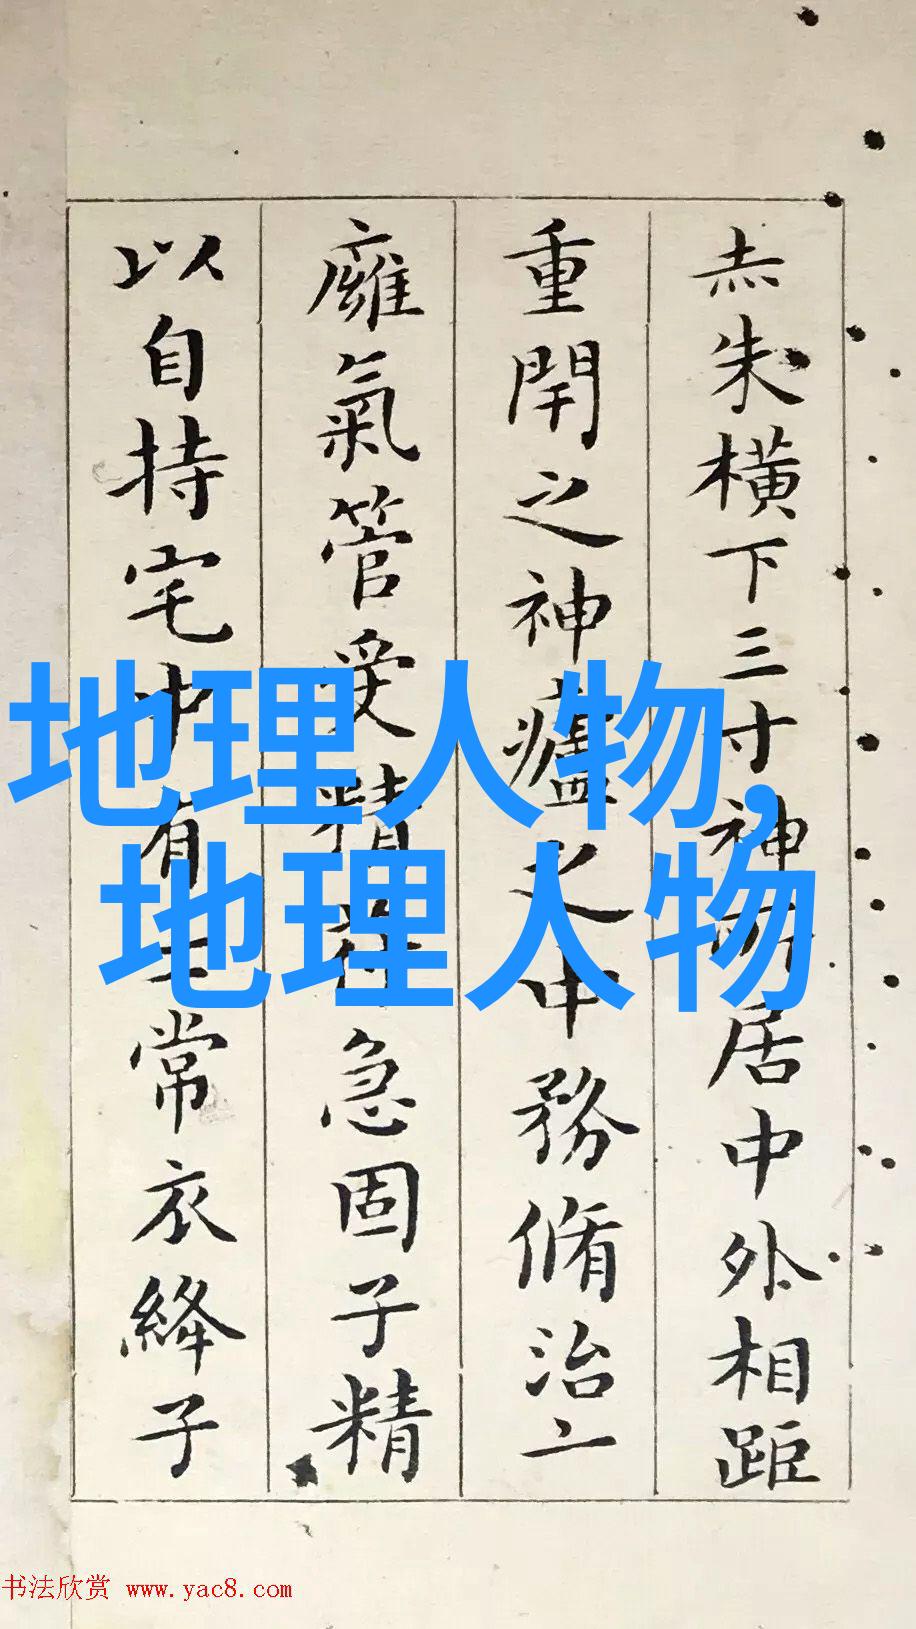 赤朱橫下三寸神所居中外相距
重閇之神廬之中務脩治
廱氣管受精苻急固子精
以自持宅中有士常衣絳子
地理人物,
地理人物
书法欣赏 www.yac8.com